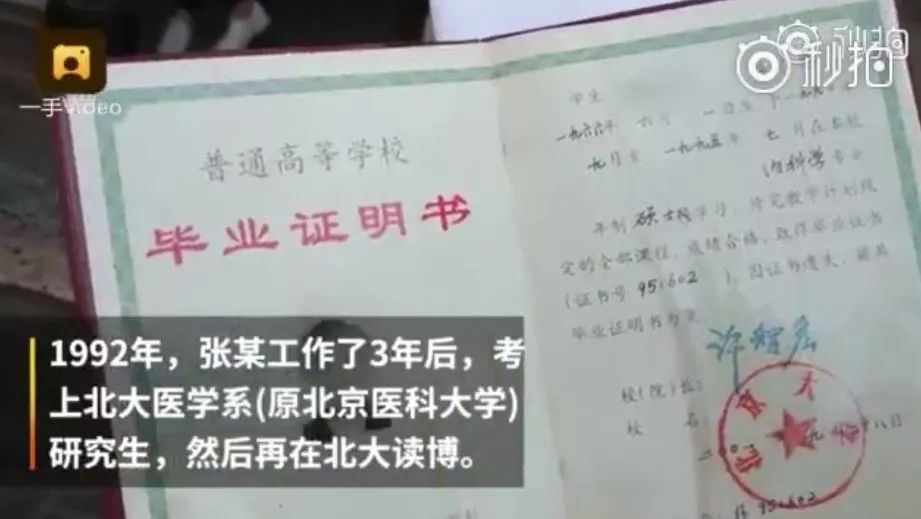 一手Video
秒拍
秒拍
普通高等学校
毕业证明书
学生
一九六六年 一日生,
九月至 一九九五年 七 月在本校
内科学 专业
年制 硕士 学习, 修完教学计划规
定的全部课程, 成绩合格, 取得毕业证书
(证书号 951602 ), 因证书遗失, 特具
毕业证明书为凭。
许智宏
校(院)长:
校 名:
951602
1992年，张某工作了3年后，考
上北大医学系(原北京医科大学)
研究生，然后再在北大读博。